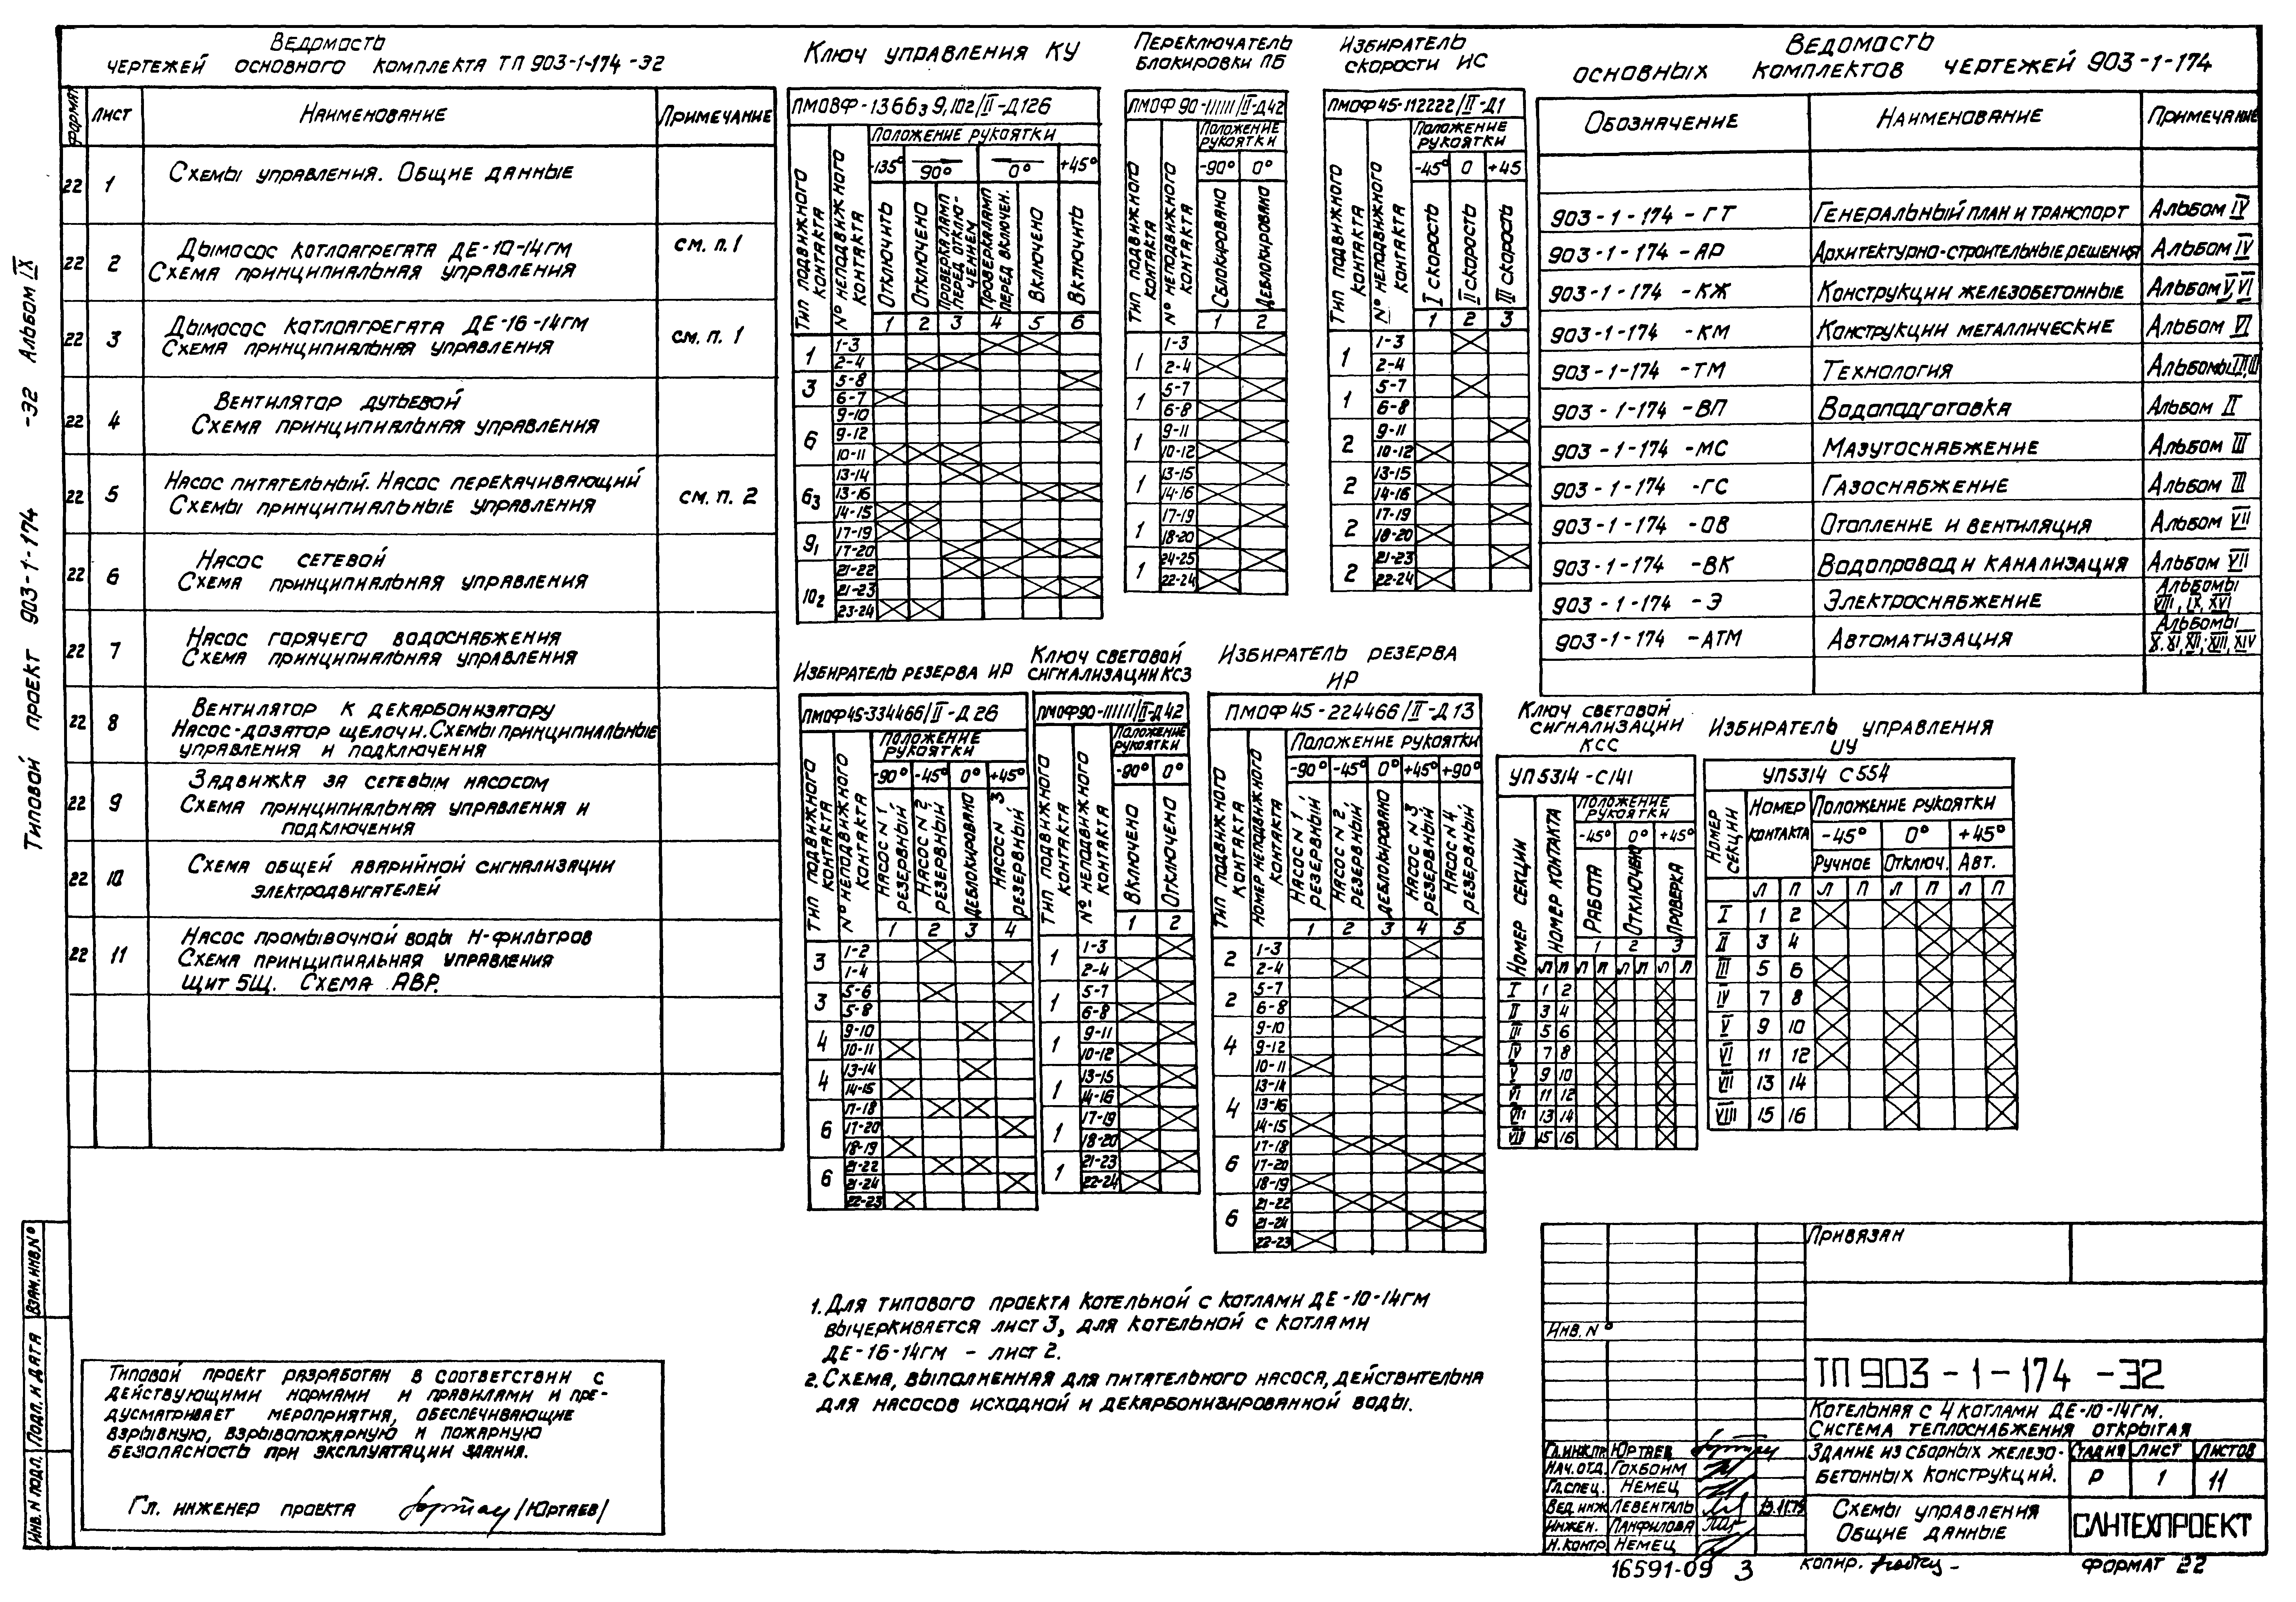 Ведомость
чертежей основного комплекта ТП 903-1-174 -Э2
Формат
Лист
Наименование
Примечание
22 1 Схемы управления. Общие данные
22 2 Дымосос котлоагрегата ДЕ-10-14ГМ
Схема принципиальная управления
см. п.1
22 3 Дымосос котлоагрегата ДЕ-16-14ГМ
Схема принципиальная управления
см. п. 1
22 4 Вентилятор дутьевой
Схема принципиальная управления
22 5 Насос питательный. Насос перекачивающий
Схемы принципиальные управления
см. п. 2
22 6 Насос сетевой
Схема принципиальная управления
22 7 Насос горячего водоснабжения
Схема принципиальная управления
22 8 Вентилятор к декарбонизатору
Насос-дозатор щелочи. Схемы принципиальные
управления и подключения
22 9 Задвижка за сетевым насосом
Схема принципиальная управления и
подключения
22 10 Схема общей аварийной сигнализации
электродвигателей
22 11 Насос промывочной воды Н-фильтров
Схема принципиальная управления
Щит 5Щ. Схема АВР.
Типовой проект 903-1-174 -Э2 Альбом IX
Ключ управления КУ
ПМОВФ-1366₃9,102/II-Д126
Тип подвижного контакта
№ неподвижного контакта
Положение рукоятки
-135° 90° 0° +45°
Отключить
Отключено
Проверка ламп перед отключением
Проверка ламп перед включен.
Включено
Включить
1 2 3 4 5 6
1 1-3
2-4
3 5-8
6-7
6 9-10
9-12
10-11
6₃ 13-14
13-16
14-15
9₁ 17-19
17-20
10₂ 21-22
21-23
23-24
Переключатель
блокировки ПБ
ПМОФ 90-111111/II-Д42
Тип подвижного контакта
№ неподвижного контакта
Положение
рукоятки
-90° 0°
Сблокировано
Деблокировано
1 2
1 1-3
2-4
1 5-7
6-8
1 9-11
10-12
1 13-15
14-16
1 17-19
18-20
1 24-25
22-24
Избиратель
скорости ИС
ПМОФ 45-112222/II-Д1
Тип подвижного контакта
№ неподвижного контакта
Положение
рукоятки
-45° 0 +45
I скорость
II скорость
III скорость
1 2 3
1 1-3
2-4
1 5-7
6-8
2 9-11
10-12
2 13-15
14-16
2 17-19
18-20
2 21-23
22-24
Ведомость
основных комплектов чертежей 903-1-174
Обозначение Наименование Примечание
903-1-174 -ГТ Генеральный план и транспорт Альбом IV
903-1-174 -АР Архитектурно-строительные решения Альбом IV
903-1-174 -КЖ Конструкции железобетонные Альбом V, VI
903-1-174 -КМ Конструкции металлические Альбом VI
903-1-174 -ТМ Технология Альбомы
903-1-174 -ВП Водоподготовка Альбом II
903-1-174 -МС Мазутоснабжение Альбом III
903-1-174 -ГС Газоснабжение Альбом III
903-1-174 -ОВ Отопление и вентиляция Альбом VII
903-1-174 -ВК Водопровод и канализация Альбом VII
903-1-174 -Э Электроснабжение Альбомы
VIII, IX, XVI
903-1-174 -АТМ Автоматизация Альбомы
X, XI, XII, XIII, XIV
Избиратель резерва ИР
ПМОФ45-334466/II-Д26
Тип подвижного контакта
№ неподвижного контакта
Положение
рукоятки
-90° -45° 0° +45°
Насос N 1 резервный
Насос N 2 резервный
Деблокировано
Насос N 3 резервный
1 2 3 4
3 1-2
1-4
3 5-6
5-8
4 9-10
10-11
4 13-14
14-15
6 17-18
17-20
18-19
6 21-22
21-24
22-23
Ключ световой
сигнализации КСЗ
ПМОФ90-111111/II-Д42
Тип подвижного контакта
№ неподвижного контакта
Положение
рукоятки
-90° 0°
Включено
Отключено
1 2
1 1-3
2-4
1 5-7
6-8
1 9-11
10-12
1 13-15
14-16
1 17-19
18-20
1 21-23
22-24
Избиратель резерва
ИР
ПМОФ 45-224466/II-Д13
Тип подвижного контакта
Номер неподвижного контакта
Положение рукоятки
-90° -45° 0° +45° +90°
Насос N 1, резервный
Насос N 2, резервный
Деблокировано
Насос N 3 резервный
Насос N 4, резервный
1 2 3 4 5
2 1-3
2-4
2 5-7
6-8
4 9-10
9-12
10-11
4 13-14
13-16
14-15
6 17-18
17-20
18-19
6 21-22
21-24
22-23
Ключ световой
сигнализации
КСС
УП5314-С141
Номер секции
Номер контакта
Положение
рукоятки
-45° 0° +45°
Работа
Отключено
Проверка
1 2 3
Л П Л П Л П Л П
I 1 2
II 3 4
III 5 6
IV 7 8
V 9 10
VI 11 12
VII 13 14
VIII 15 16
Избиратель управления
ИУ
УП5314 С554
Номер секции
Номер
контакта
Положение рукоятки
-45° 0° +45°
Ручное Отключ. Авт.
Л П Л П Л П Л П
I 1 2
II 3 4
III 5 6
IV 7 8
V 9 10
VI 11 12
VII 13 14
VIII 15 16
1. Для типового проекта котельной с котлами ДЕ-10-14ГМ
вычеркивается лист 3, для котельной с котлами
ДЕ-16-14ГМ - лист 2.
2. Схема, выполненная для питательного насоса, действительна
для насосов исходной и декарбонизированной воды.
Типовой проект разработан в соответствии с
действующими нормами и правилами и пре-
дусматривает мероприятия, обеспечивающие
взрывную, взрывопожарную и пожарную
безопасность при эксплуатации здания.
Гл. инженер проекта /Юртаев/
Взам. инв. №
Подп. и дата
Инв. N подл.
Привязан
Инв. №
ТП 903-1-174 -Э2
Котельная с 4 котлами ДЕ-10-14ГМ.
Система теплоснабжения открытая
Гл. инж. пр. Юртаев
Нач. отд. Гохбоим
Гл. спец. Немец
Вед. инж. Левенталь 13.11.79
Инжен. Панфилова
Н. контр. Немец
Здание из сборных железо-
бетонных конструкций.
Стадия Лист Листов
Р 1 11
Схемы управления
Общие данные
САНТЕХПРОЕКТ
16591-09 3
копир.
формат 22